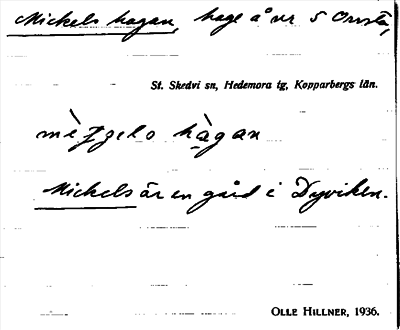 Mickels hagan, hage å nr 5 Onsta,
St. Skedvi sn, Hedemora tg, Kopparbergs län.
hàgan
Mickels är en gård i Dyviken.
OLLE HILLNER, 1936.